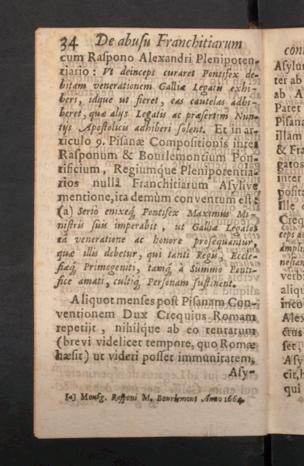 34 De abusu Franchitiarum
cum Raspono Alexandri Plenipoten-
tiario: Vt deinceps curaret Pontifex de-
bitam venerationem Galliæ Legatis exhi-
beri, idque ut fieret, eas cautelas adhi-
beret, quæ alijs Legatis ac præsertim Nun-
tijs Apostolicis adhiberi solent. Et in ar-
ticulo 9. Pisanæ Compositionis inter
Rasponum & Bourlemontium Pon-
tificium, Regiumque Plenipotentia-
rios nulla Franchitiarum Asylive
mentione, ita demùm conventum est:
(a) Seriò enixeq; Pontifex Maximus Mi-
nistris suis imperabit, ut Galliæ Legatos
ea veneratione ac honore prosequantur,
quæ illi debetur, qui tanti Regis, Eccle-
siæq; Primogeniti, tamq; à Summo Ponti-
fice amati, cultiq; Personam sustinent.
Aliquot menses post Pisanam Con-
ventionem Dux Crequius Romam
repetijt, nihilque ab eo tentatum
(brevi videlicet tempore, quo Romæ
hæsit) ut videri posset immunitatem,
Asy-
(a) Monsg. Rasponi M. Bourlemont Anno 1664.
con
Asylu
ter ab
ab A
Pater
Pisana
illam
& Fra
gatos
inter